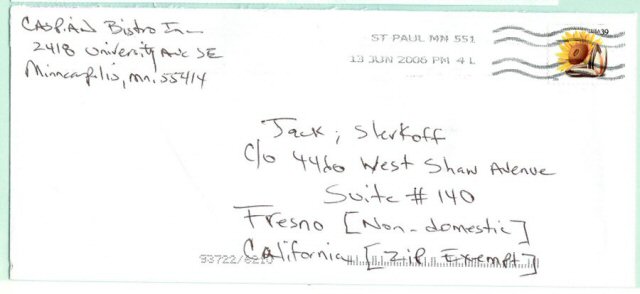 CASPIAN Bistro Inc
2418 University Ave SE
Minneapolis, Mn. 55414
ST PAUL MN 551
13 JUN 2006 PM 4 L
39
Jack; Slerkoff
C/o 4460 West Shaw Avenue
Suite # 140
Fresno [Non-domestic]
California [Zip Exempt]
93722/6210